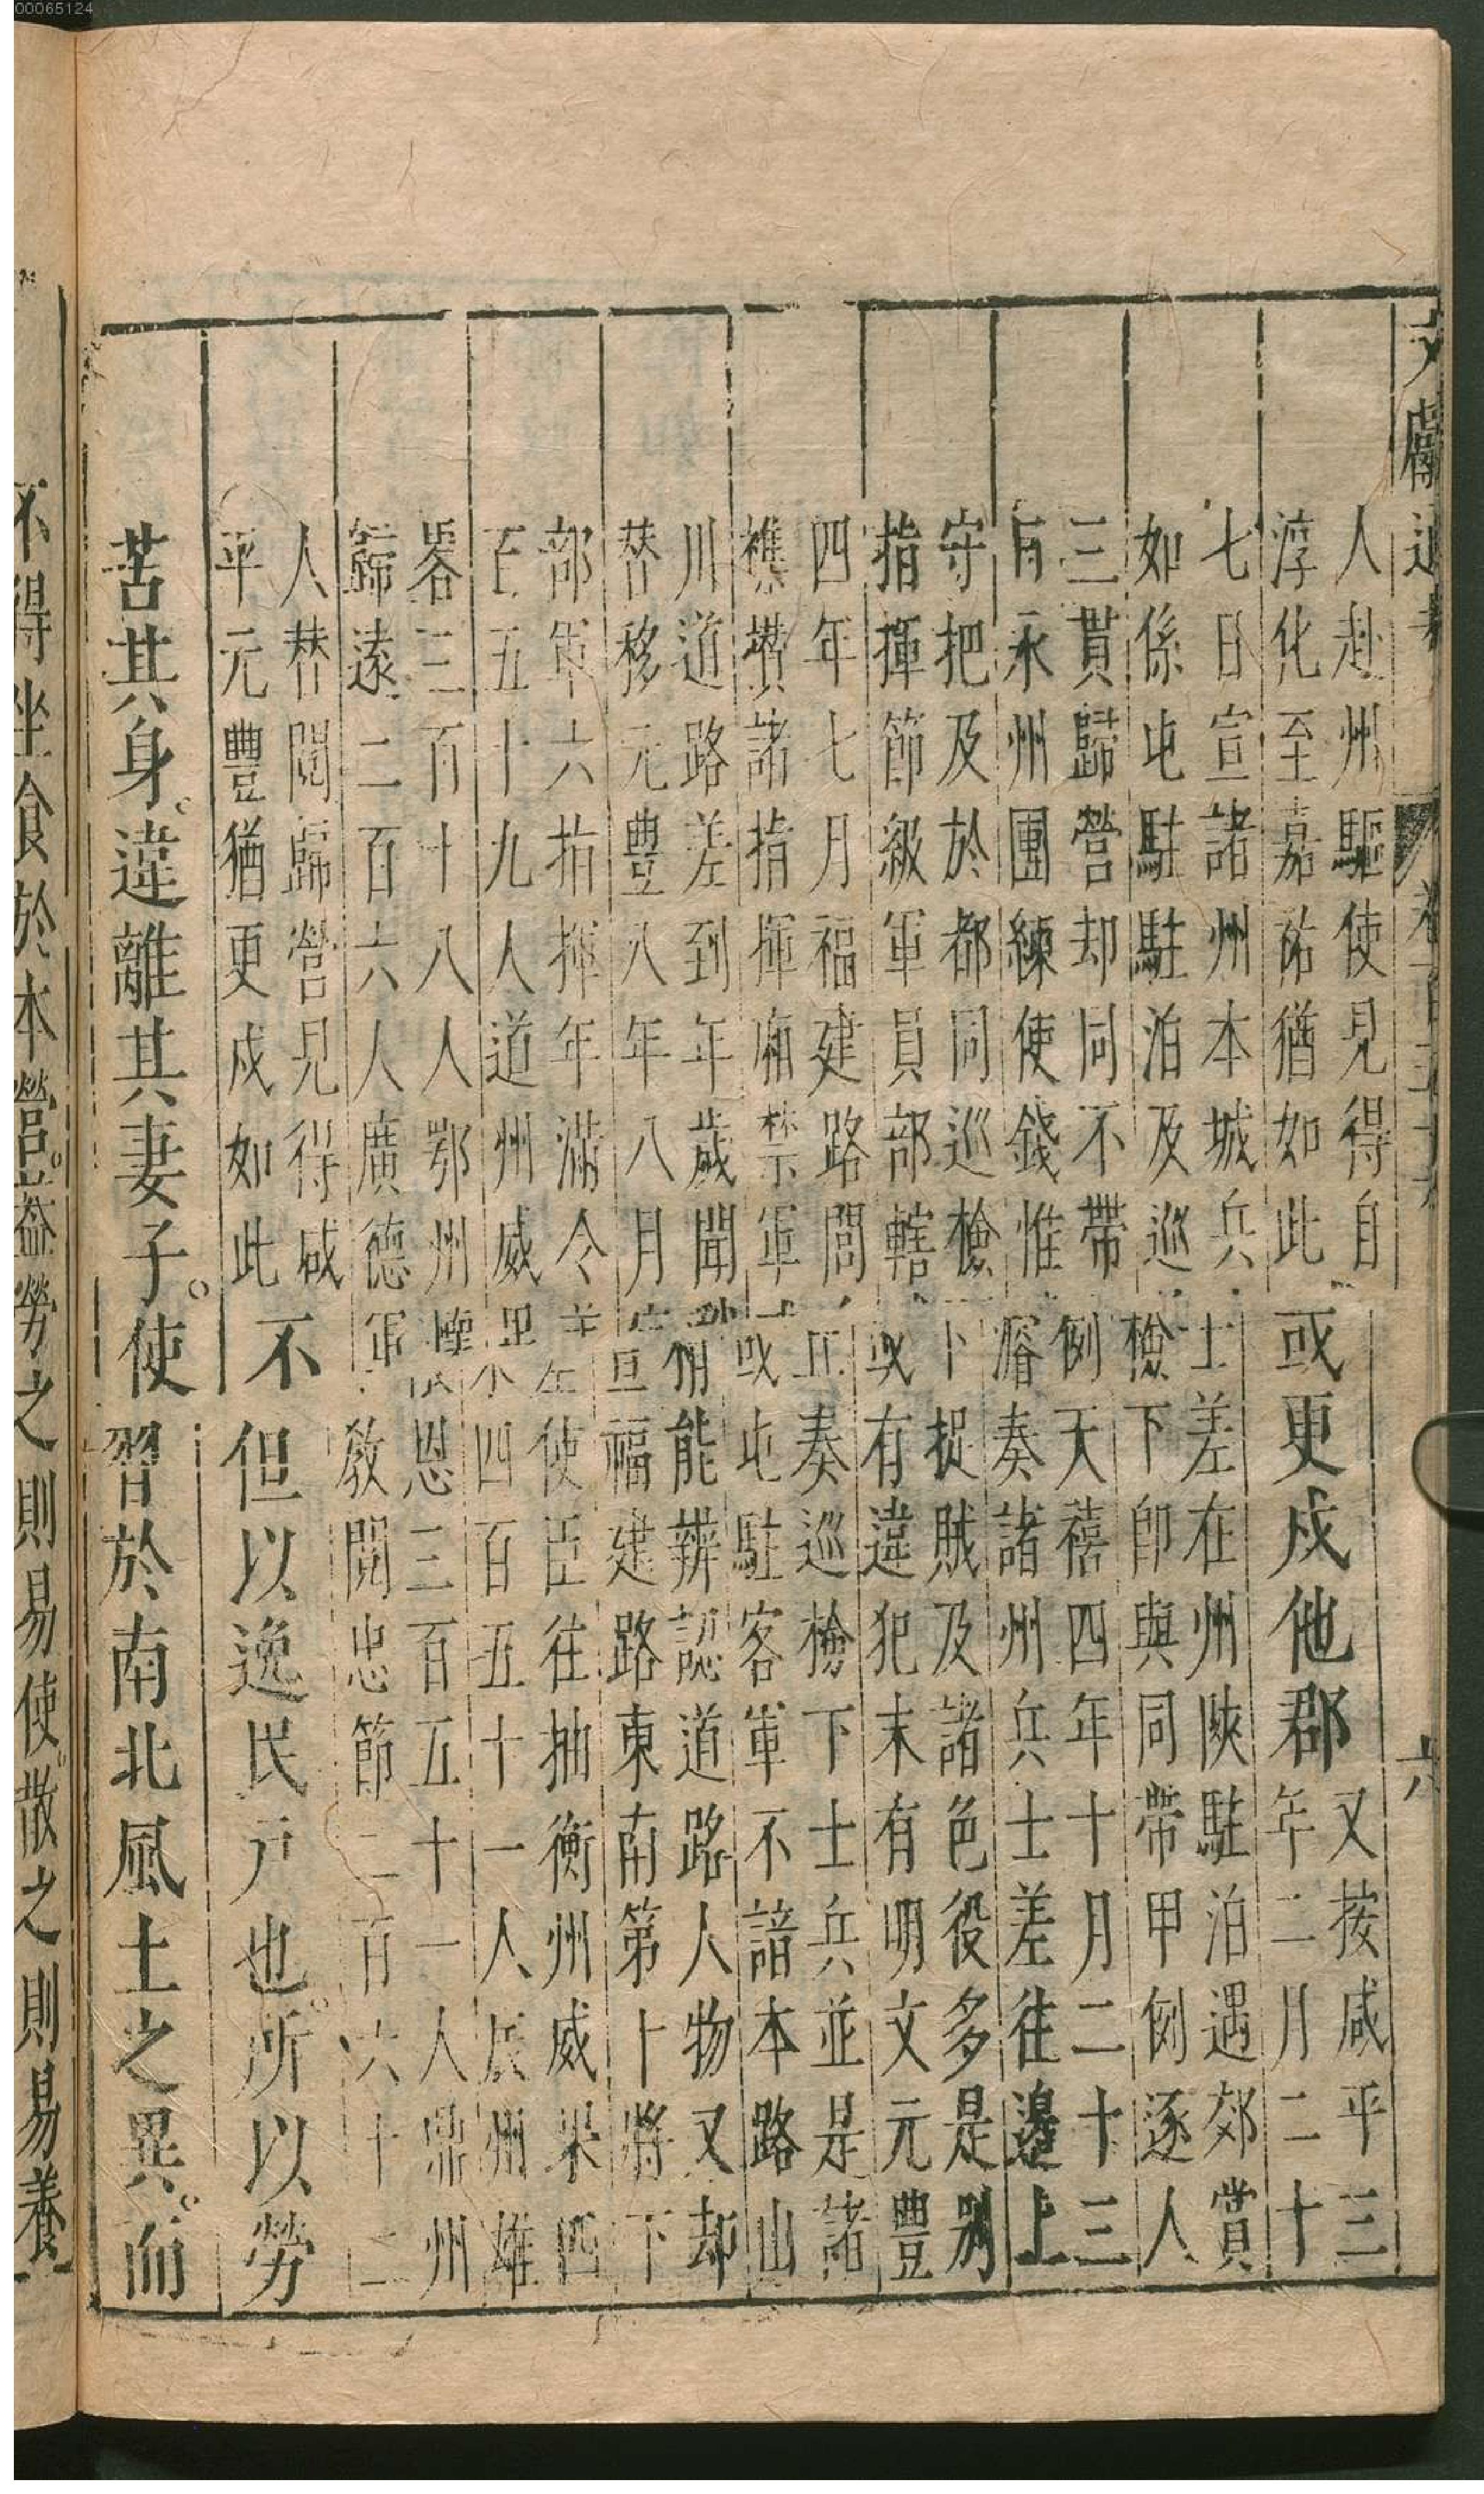 00065124
文獻通考 卷一百五十六 六
人赴州驅使見得自
淳化至嘉祐猶如此
或更戍他郡
又按咸平三
年二月二十
七日宣諸州本城兵士差在州陜駐泊遇郊賞
如係屯駐駐泊及巡檢下卽與同帶甲例逐人
三貫歸營却同不帶例天禧四年十月二十三
有永州團練使錢惟濬奏諸州兵士差往邊上
守把及於都同巡檢下捉賊及諸色役多是別
指揮節級軍員部轄或有違犯未有明文元豐
四年七月福建路問立奏巡檢下士兵並是諸
攢諸指揮廂禁軍或屯駐客軍不諳本路山
川道路差到年歲聞稍能辨認道路人物又却
替移元豐八年八月福建路東南第十將下
部軍六指揮年滿令差使臣往抽衡州威果四
百五十九人道州威果四百五十一人辰州雄
畧三百十八人鄂州懷恩三百五十一人鼎州
歸遠二百六人廣德軍敎閱忠節二百六十二
人替閱歸營見得咸
平元豐猶更戍如此
不但以逸民戶也所以勞
苦其身違離其妻子使習於南北風土之異而
不得坐食於本營蓋勞之則易使散之則易養